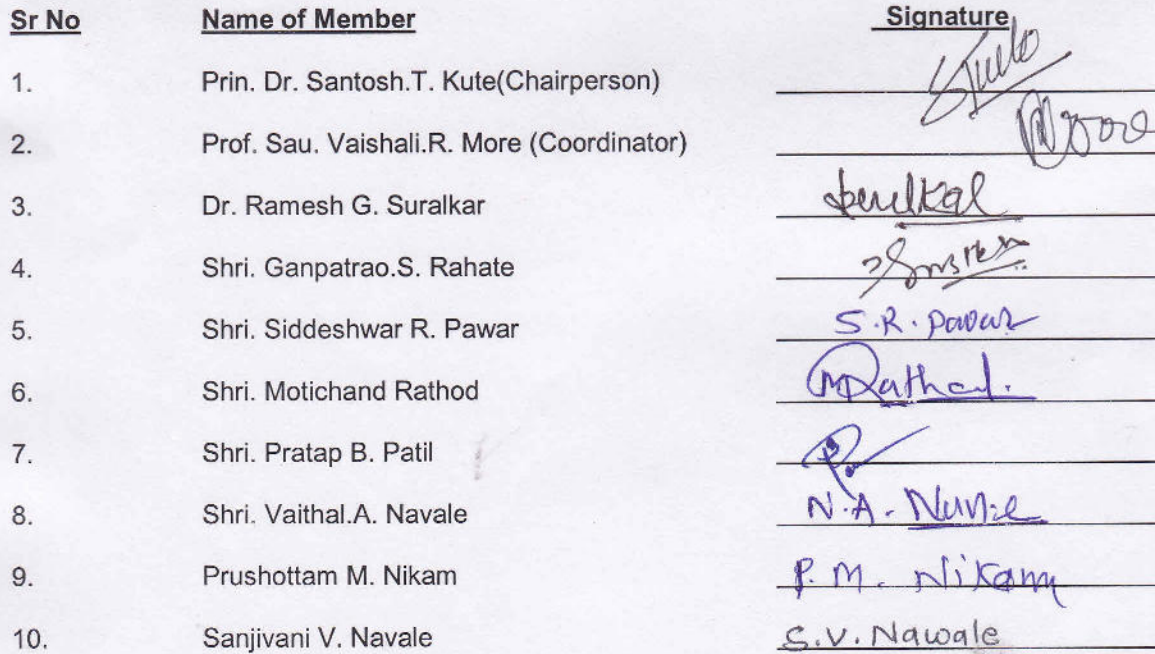 Sr No Name of Member Signature
1. Prin. Dr. Santosh.T. Kute(Chairperson) SKute
2. Prof. Sau. Vaishali.R. More (Coordinator) More
3. Dr. Ramesh G. Suralkar
4. Shri. Ganpatrao.S. Rahate
5. Shri. Siddeshwar R. Pawar S.R. Pawar
6. Shri. Motichand Rathod MRathod.
7. Shri. Pratap B. Patil
8. Shri. Vaithal.A. Navale N.A.
9. Prushottam M. Nikam P. M. Nikam
10. Sanjivani V. Navale S.V. Nawale